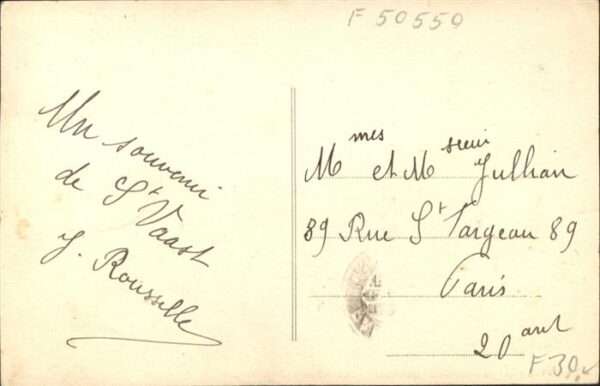 F 50550
Un souvenir
de St Vaast
J. Rousselle
Mmes et Msieur Jullian
89 Rue St Fargeau 89
Paris
20 arrt
F 30,-